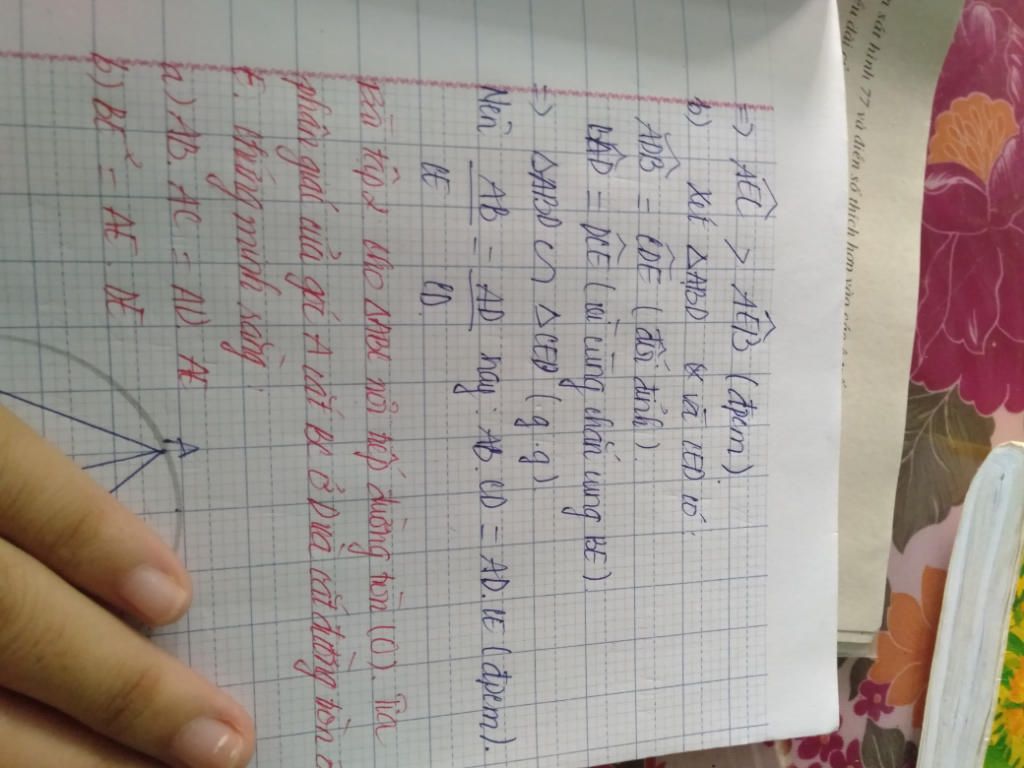 => AEC > AEB (đpcm).
b) Xét △ABD & và CED có:
ADB = CDE (đối đỉnh).
BAD = DCE (vì cùng chắn cung BE)
=> △ABD ∽ △CED (g.g)
Nên AB/CE = AD/CD hay: AB.CD = AD.CE (đpcm).
Bài tập 2 cho △ABC nội tiếp đường tròn (O). Tia
phân giác của góc A cắt BC ở D và cắt đường tròn ở
E. Chứng minh rằng:
a) AB. AC = AD. AE
b) BE² = AE. DE
A
sát hình 77 và điền số thích hợp vào